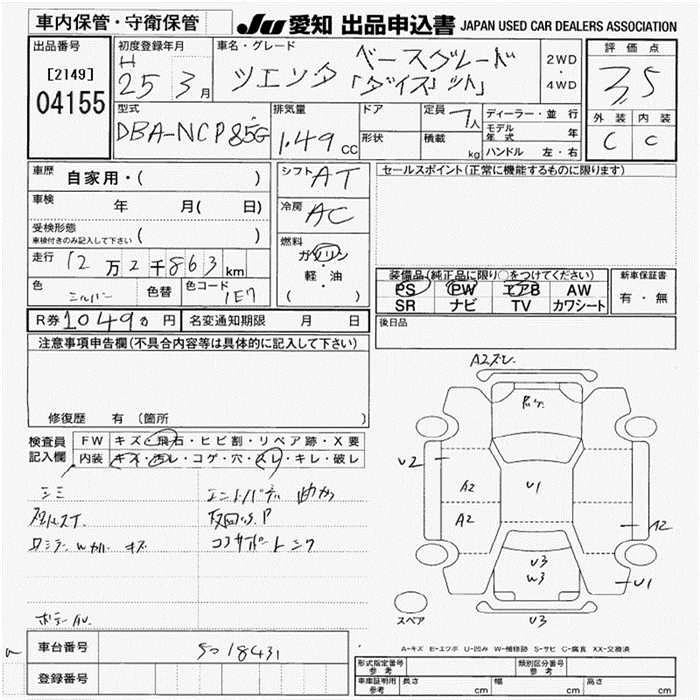 車内保管・守衛保管
JU 愛知 出品申込書 JAPAN USED CAR DEALERS ASSOCIATION
出品番号
[2149]
04155
初度登録年月
H
25 3月
車名・グレード
ベースグレード
「ダイス」
2WD
・
4WD
評価点
3,5
外装 内装
C C
型式
DBA-NCP85G
排気量
1.49 cc
ドア
形状
定員 7人
積載 kg
ディーラー・並行
モデル年式 年
ハンドル 左・右
車歴 自家用・( )
車検 年 月( 日)
受検形態
車検付きのみ記入して下さい ( )
走行 12万2千863km
色 シルバー 色替 色コード 1E7
シフト AT
冷房 AC
燃料
ガソリン
・
軽・油
( )
セールスポイント(正常に機能するものに限ります)
装備品(純正品に限り○をつけてください)
PS PW エアB AW
SR ナビ TV カワシート
新車保証書
有・無
R券 1049 0 円 名変通知期限 月 日
後日品
注意事項申告欄(不具合内容等は具体的に記入して下さい)
修復歴 有 〔箇所 〕
検査員
記入欄
FW キズ・飛石・ヒビ割・リペア跡・X要
内装 キズ・汚レ・コゲ・穴・スレ・キレ・破レ
シミ
キズ
A2
U2
A2
A2
U1
U3
W3
U1
U3
スペア
A-キズ E-エクボ U-凹み W-補修跡 S-サビ C-腐食 XX-交換済
車台番号 5018431
登録番号
形式指定番号
参考
類別区分番号
参考
車庫証明用
参考
長さ cm 幅 cm 高さ cm